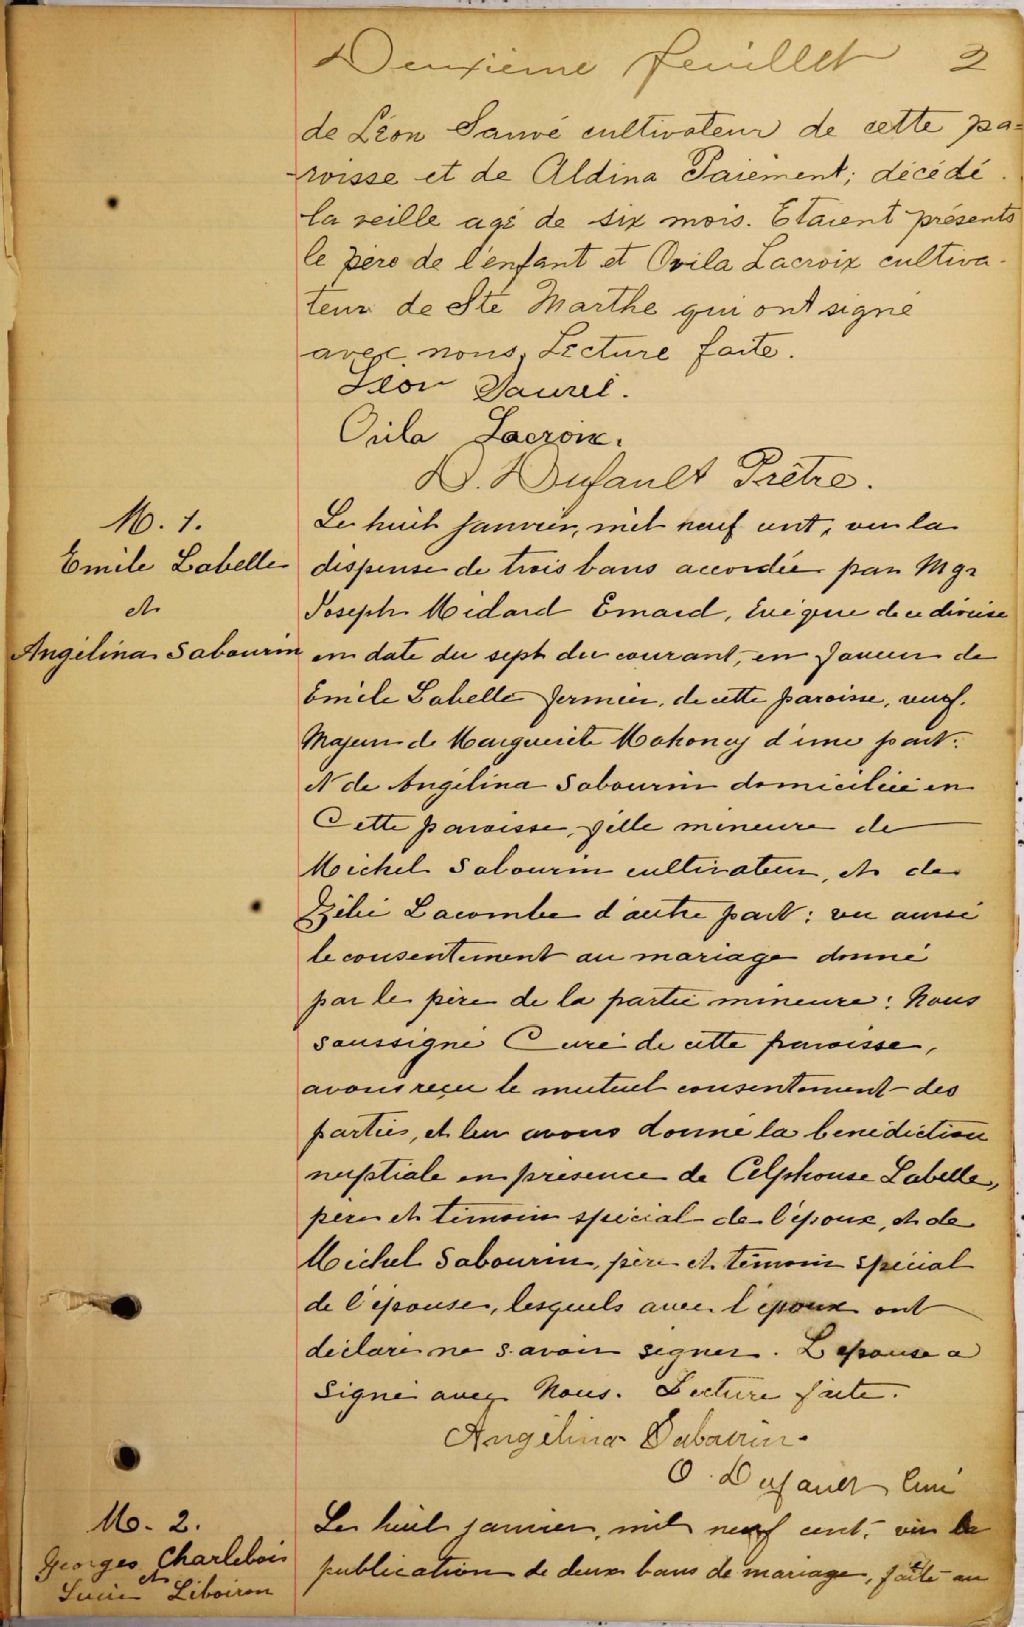 Deuxième feuillet 2
de Léon Sauvé cultivateur de cette pa=
-roisse et de Aldina Paiement; décédé
la veille agé de six mois. Etaient présents
le père de l'enfant et Ovila Lacroix cultiva-
teur de Ste Marthe qui ont signé
avec nous, Lecture faite.
Léon Sauvé.
Ovila Lacroix.
D. Dufault Prêtre.
M. 1.
Emile Labelle
et
Angélina Sabourin
Le huit janvier, mil neuf cent, vu la
dispense de trois bans accordée par Mgr
Joseph Médard Emard, Evêque de ce diocèse
en date du sept du courant, en faveur de
Emile Labelle fermier, de cette paroisse, veuf.
Majeur de Marguerite Mahoney d'une part:
et de Angélina Sabourin domiciliée en
Cette paroisse, fille mineure de
Michel Sabourin cultivateur, et de
Zélie Lacombe d'autre part: vu aussi
le consentement au mariage donné
par le père de la partie mineure: Nous
soussigné Curé de cette paroisse,
avons reçu le mutuel consentement des
parties, et leur avons donné la bénédiction
nuptiale en présence de Alphonse Labelle,
père et témoin spécial de l'époux, et de
Michel Sabourin, père et témoin spécial
de l'épouse, lesquels avec l'époux ont
déclaré ne savoir signer. L'epouse a
signé avec Nous. Lecture faite.
Angélina Sabourin.
O. Dufault Curé
M. 2.
Georges Charlebois
et
Lucie Liboiron
Le huit janvier, mil neuf cent, vu la
publication de deux bans de mariage, faite au